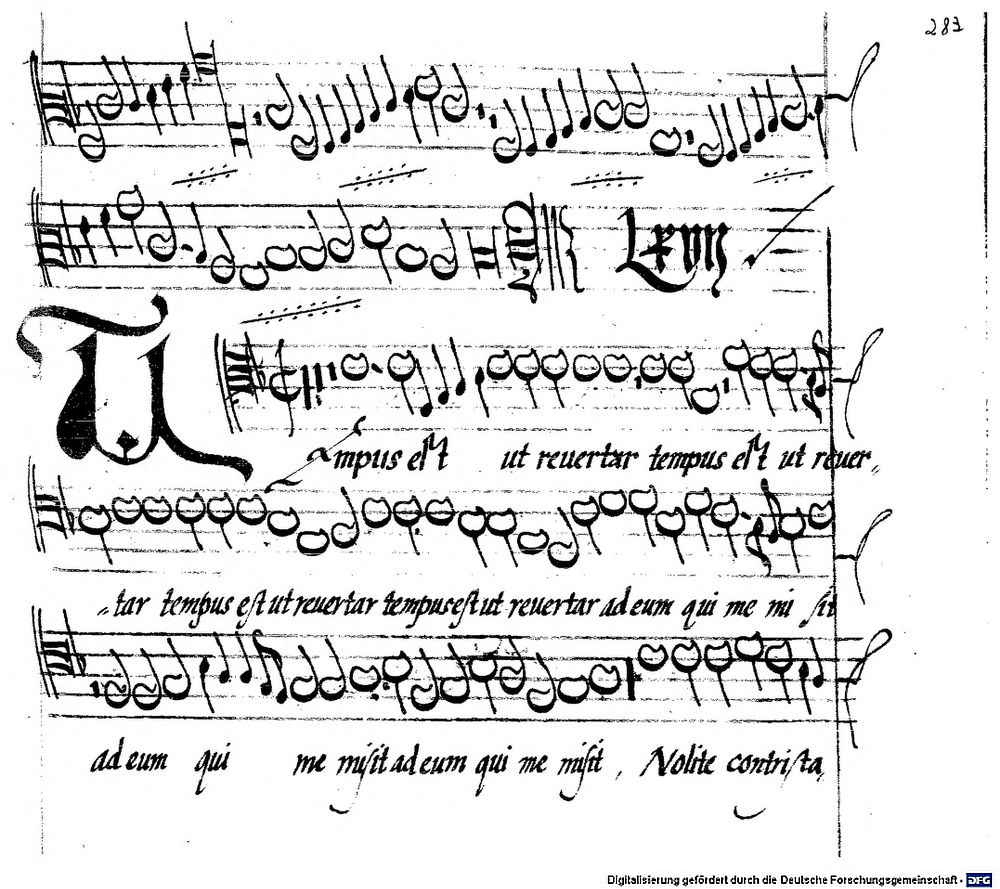 283
Lxviii
Tempus est ut reuertar tempus est ut reuer„
„tar tempus est ut reuertar tempus est ut reuertar ad eum qui me mi sit
ad eum qui me misit ad eum qui me misit, Nolite contrista,
Digitalisierung gefördert durch die Deutsche Forschungsgemeinschaft - DFG